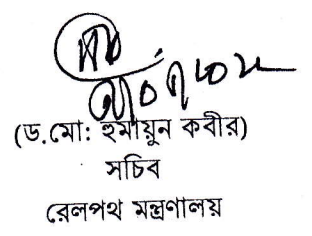 (ড.মো: হুমায়ুন কবীর)
সচিব
রেলপথ মন্ত্রণালয়